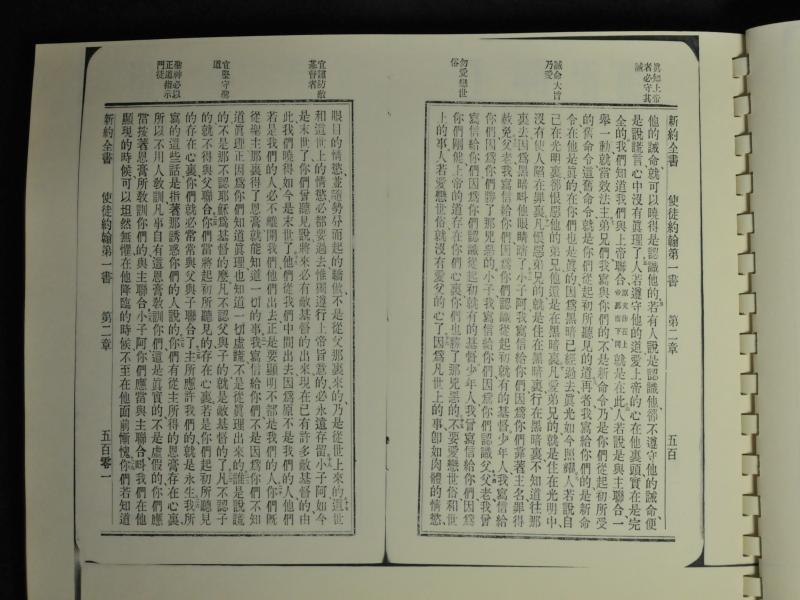 新約全書 使徒約翰第一書 第二章 五百
眞知上帝
者必守其
誡
誡命大旨
乃愛
勿愛戀世
俗
他的誡命就可以曉得是認識他的若有人說是認識他卻不遵守他的誡命便
是說謊言心中沒有眞理了人若遵守他的道愛上帝的心在他裏頭實在是完
全的我們知道我們與上帝聯合就是在此人若說是與主聯合一
舉一動就當效法主弟兄們我寫與你們的不是新命令乃是你們從起初所受
的舊命令這舊命令就是你們從起初所聽見的道再者我寫給你們的是新命
令在他是眞的在你們也是眞的因爲黑暗已經過去眞光如今照耀人若說自
己在光明裏卻恨惡他的弟兄他還是在黑暗裏凡愛弟兄的就是住在光明中
沒有使人陷在罪裏凡恨惡弟兄的就是住在黑暗裏行在黑暗裏不知道往那
裏去因爲黑暗叫他眼睛瞎了小子阿我寫信給你們因爲你們靠著主名罪得
赦免父老我寫信給你們因爲你們認識從起初就有的基督少年人我寫信給
你們因爲你們勝了那兇惡的小子我寫信給你們因爲你們認識父父老我曾
寫信給你們因爲你們認識從起初就有的基督少年人我曾寫信給你們因爲
你們剛健上帝的道存在你們心裏你們也勝了那兇惡的不要愛戀世俗和世
上的事人若愛戀世俗就沒有愛父的心了因爲凡世上的事卽如肉體的情慾
宜謹防敵
基督者
宜堅守舊
道
聖神必以
正道指示
門徒
眼目的情慾並隨勢分而起的驕傲不是從父那裏來的乃是從世上來的這世
和這世上的情慾必都要過去惟獨遵行上帝旨意的必永遠存留小子阿如今
是末世了你們曾聽見說將來必有敵基督的出來現在已有許多敵基督的由
此我們曉得如今是末世了他們從我們中間出去因爲原不是我們的人他們
若是我們的人必不離開我們他們出去正是要顯明不都是我們的人你們旣
從聖主那裏得了恩膏就能知道一切的事我寫信給你們不是因爲你們不知
道眞理正因爲你們知道眞理也知道一切虛謊不是從眞理出來的誰是說謊
的不是那不認耶穌爲基督的麼凡不認父與子的就是敵基督的了凡不認子
的就不得與父聯合你們當將起初所聽見的存在心裏若是你們起初所聽見
的存在心裏你們就必常常與父與子聯合了主所應許我們的就是永生我所
寫的這些話是指著那誘惑你們的人說的你們有從主所得的恩膏存在心裏
所以不用人敎訓凡事自有這恩膏敎訓你們這是眞實的不是虛假的你們應
當按著恩膏所敎訓你們的與主聯合小子阿你們應當與主聯合叫我們在他
顯現的時候可以坦然無懼在他降臨的時候不至在他面前慚愧你們若知道
新約全書 使徒約翰第一書 第二章 五百零一